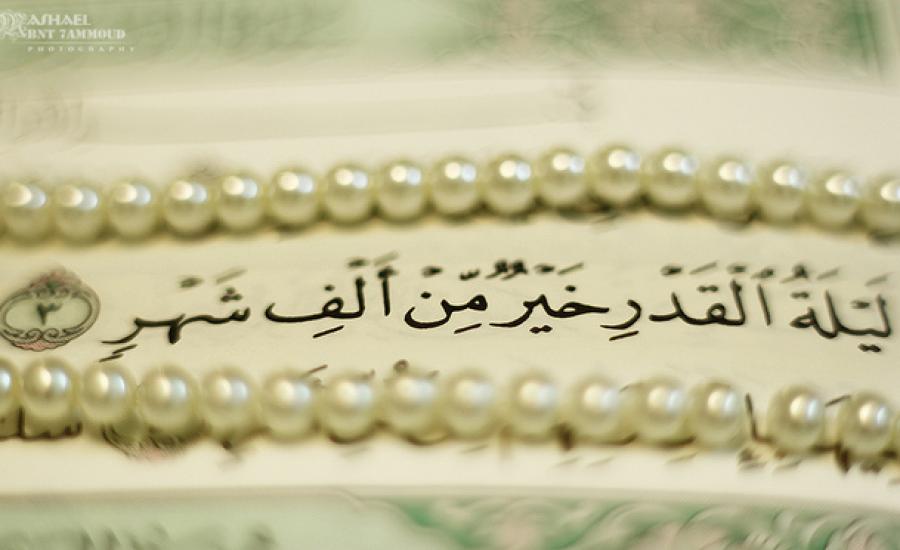 ASHAEL
BNT 7AMMOUD
PHOTOGRAPHY
لَيْلَةُ ٱلْقَدْرِ خَيْرٌ مِّنْ أَلْفِ شَهْرٍ ٣